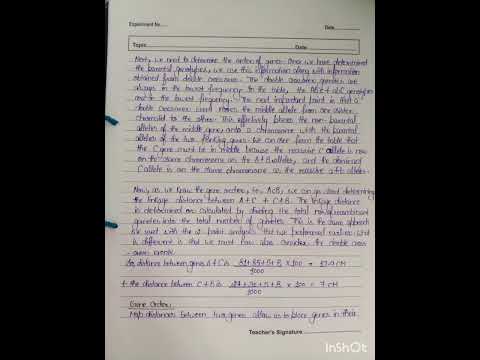 Experiment No.
Date
Topic
Date
Next, we need to determine the order of genes. Once we have determined
the parental genotypes, we use this information along with information
obtained from double crossover. The double crossover gametes are
always in the lowest frequency. In the table, the ABc + abC genotypes
are in the lowest frequency. The next important point is that a
double crossover event moves the middle allele from one sister
chromatid to the other. This effectively places the non-parental
alleles of the middle gene onto a chromosome with the parental
alleles of the two flanking genes. We can see from the table that
the C gene must be in middle because the recessive C allele is now
on the same chromosome as the A + B alleles, and the dominant
C allele is on the same chromosome as the recessive a + b alleles.
Now, as we know the gene order, i.e., ACB, we can go about determining
the linkage distance between A + C + C + B. The linkage distance
is determined or calculated by dividing the total no. of recombinant
gametes into the total number of gametes. This is the same approach
we used with the 2-point analysis that we performed earlier. What
is different is that we must now also consider the double cross-
over events.
distance between genes A + C is x 100 =
1000
+ the distance between C + B is x 100 = 7 cM
1000
Gene Order:
Map distances between two genes allow us to place genes in their
Teacher's Signature
InShOt